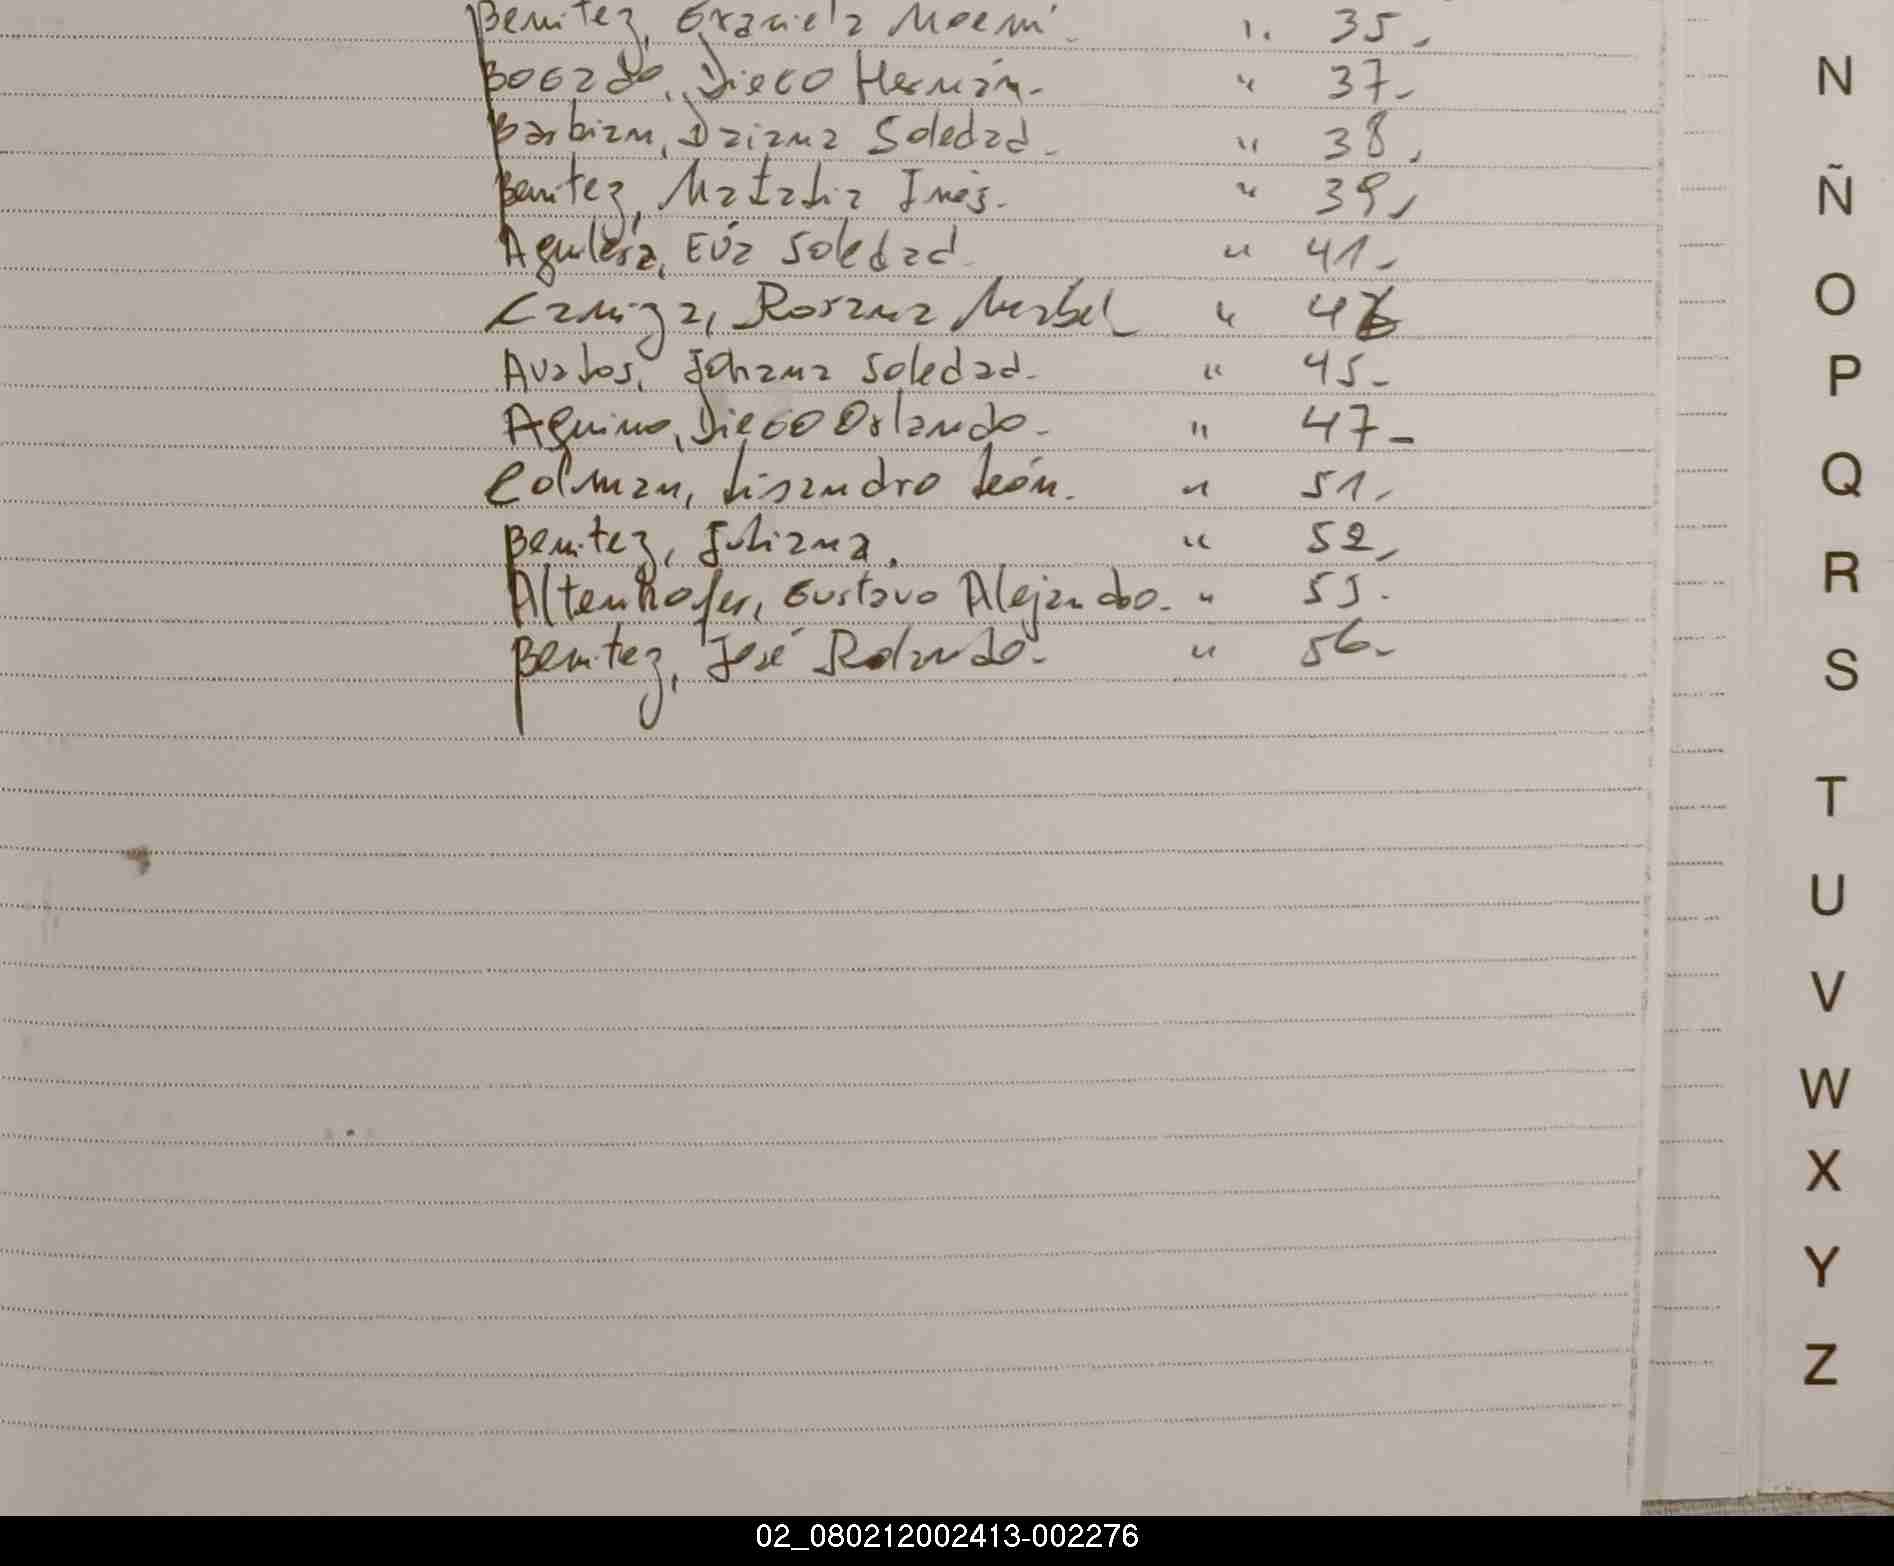 Benitez, Graciela Noemí. " 35.
Bogado, Diego Hernán. " 37.
Barbian, Daiana Soledad. " 38.
Benitez, Natalia Inés. " 39.
Aguilera, Eva Soledad. " 41.
Caniza, Rosana Mabel " 46
Avalos, Johana Soledad. " 45.
Aquino, Diego Orlando. " 47.
Colman, Lisandro León. " 51.
Benitez, Juliana. " 52.
Altenhofer, Gustavo Alejandro. " 55.
Benitez, José Rolando. " 56.
N
Ñ
O
P
Q
R
S
T
U
V
W
X
Y
Z
02_080212002413-002276